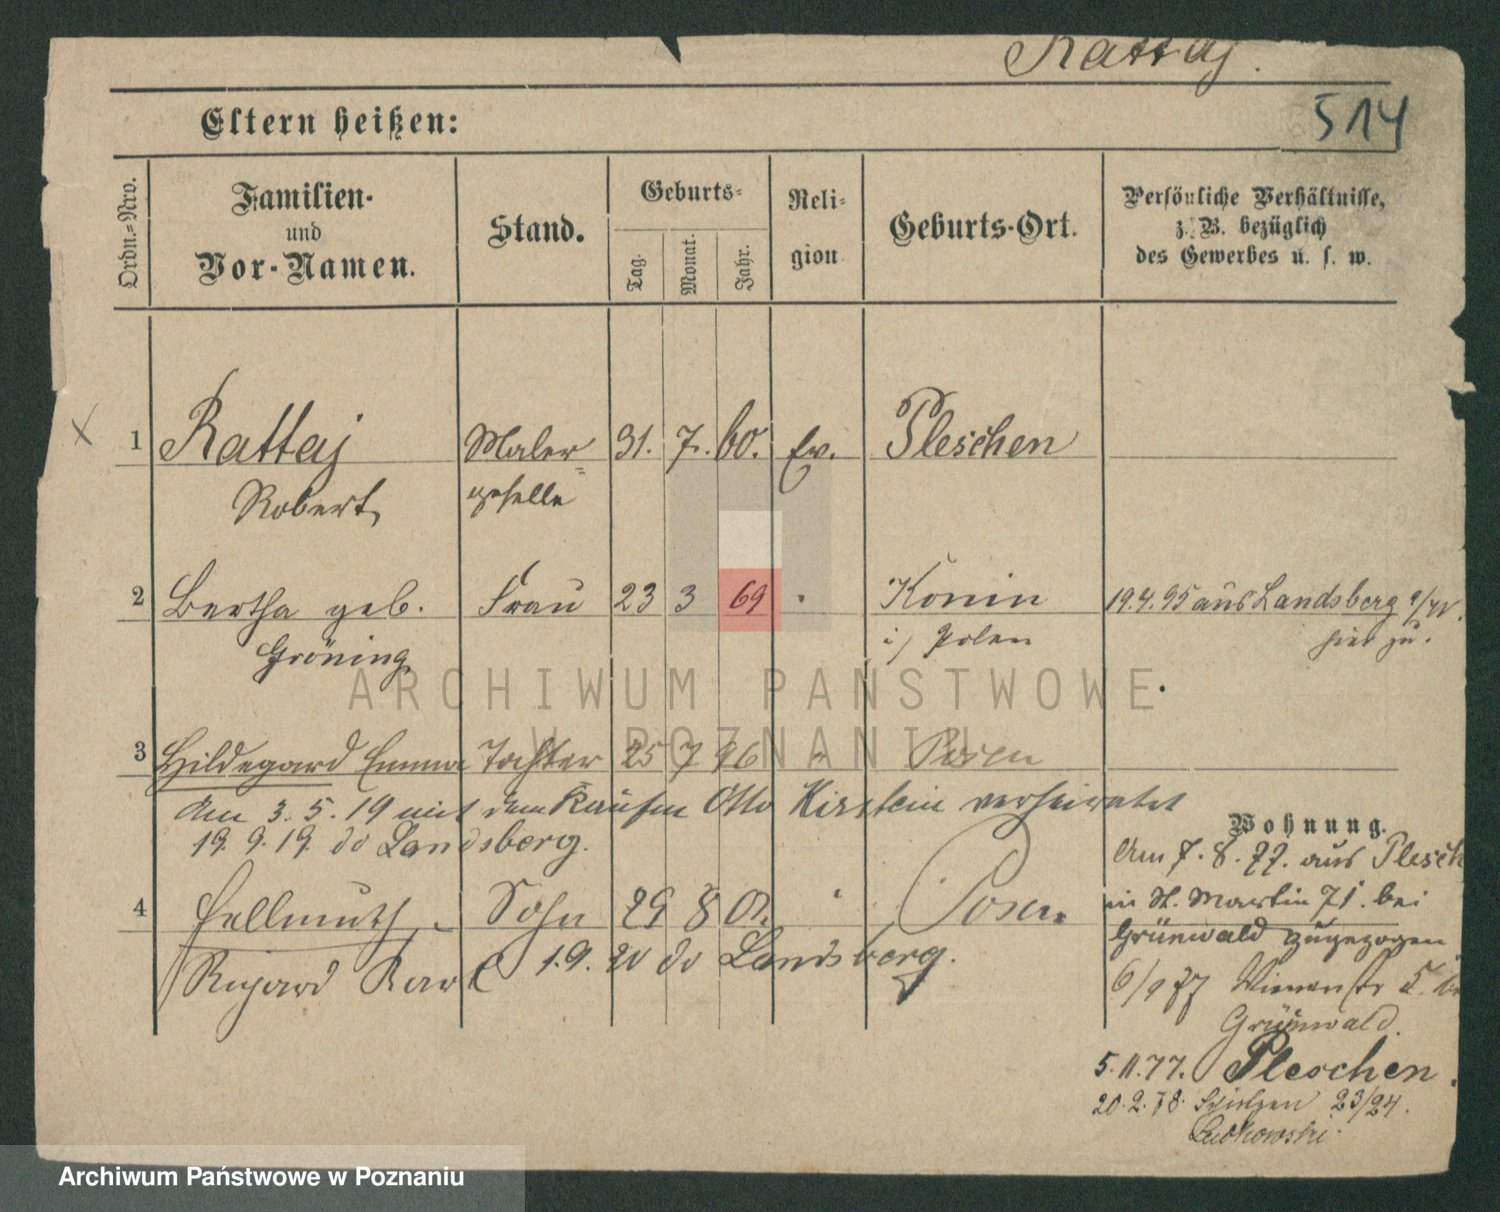 Rattaj.
514
Eltern heißen:
Ordn.-Nro.
Familien-
und
Vor-Namen.
Stand.
Geburts-
Tag. Monat. Jahr.
Reli-
gion
Geburts-Ort.
Persönliche Verhältnisse,
z. B. bezüglich
des Gewerbes u. s. w.
1 Rattaj Maler- 31. 7. 60. Ev. Pleschen
Robert geselle
2 Bertha geb. Frau 23 3 69 " Konin 19.4.95 aus Landsberg
Gröning i/ Polen hier zu.
ARCHIWUM PAŃSTWOWE
W POZNANIU
3 Hildegard Emma Tochter 25 7 96 " Posen
Am 3. 5. 19 mit dem Kaufm Otto Kirstein verheiratet
19. 9. 19. do Landsberg.
4 Hellmuth Sohn 29 8 " Posen
Richard Karl 1. 9. 20 do Landsberg.
Wohnung.
Am 7. 8. 77. aus Plesch
in St. Martin 71. bei
Grünwald zugezogen
6/9 77 5.
Grünwald.
5. 11. 77. Pleschen.
20. 2. 78. 23/24.
Archiwum Państwowe w Poznaniu